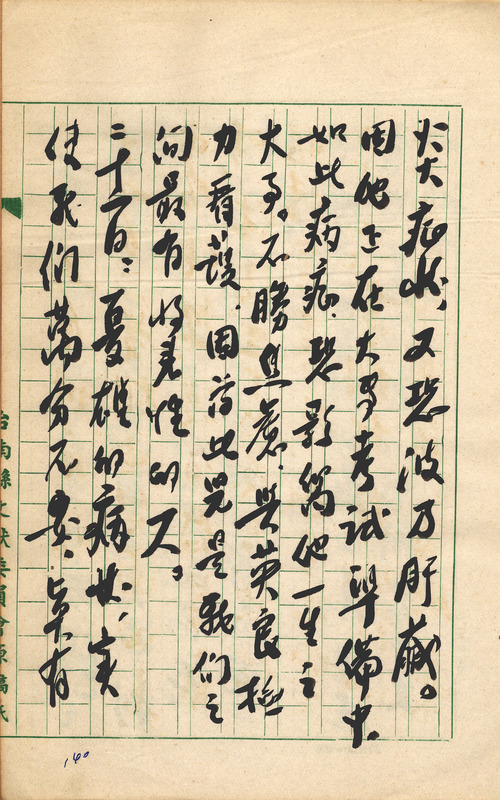 炎症狀，又恐波乃肝臟。
因他正在大學考試準備中，
如此病症，恐影響他一生之
大事。不勝焦慮，與英良極
力看護，因為此兒是我們之
間最有將來性的人。
二十一日：夏雄的病狀，實
使我們萬分不安，卓有
台南縣文獻委員會原稿紙
140